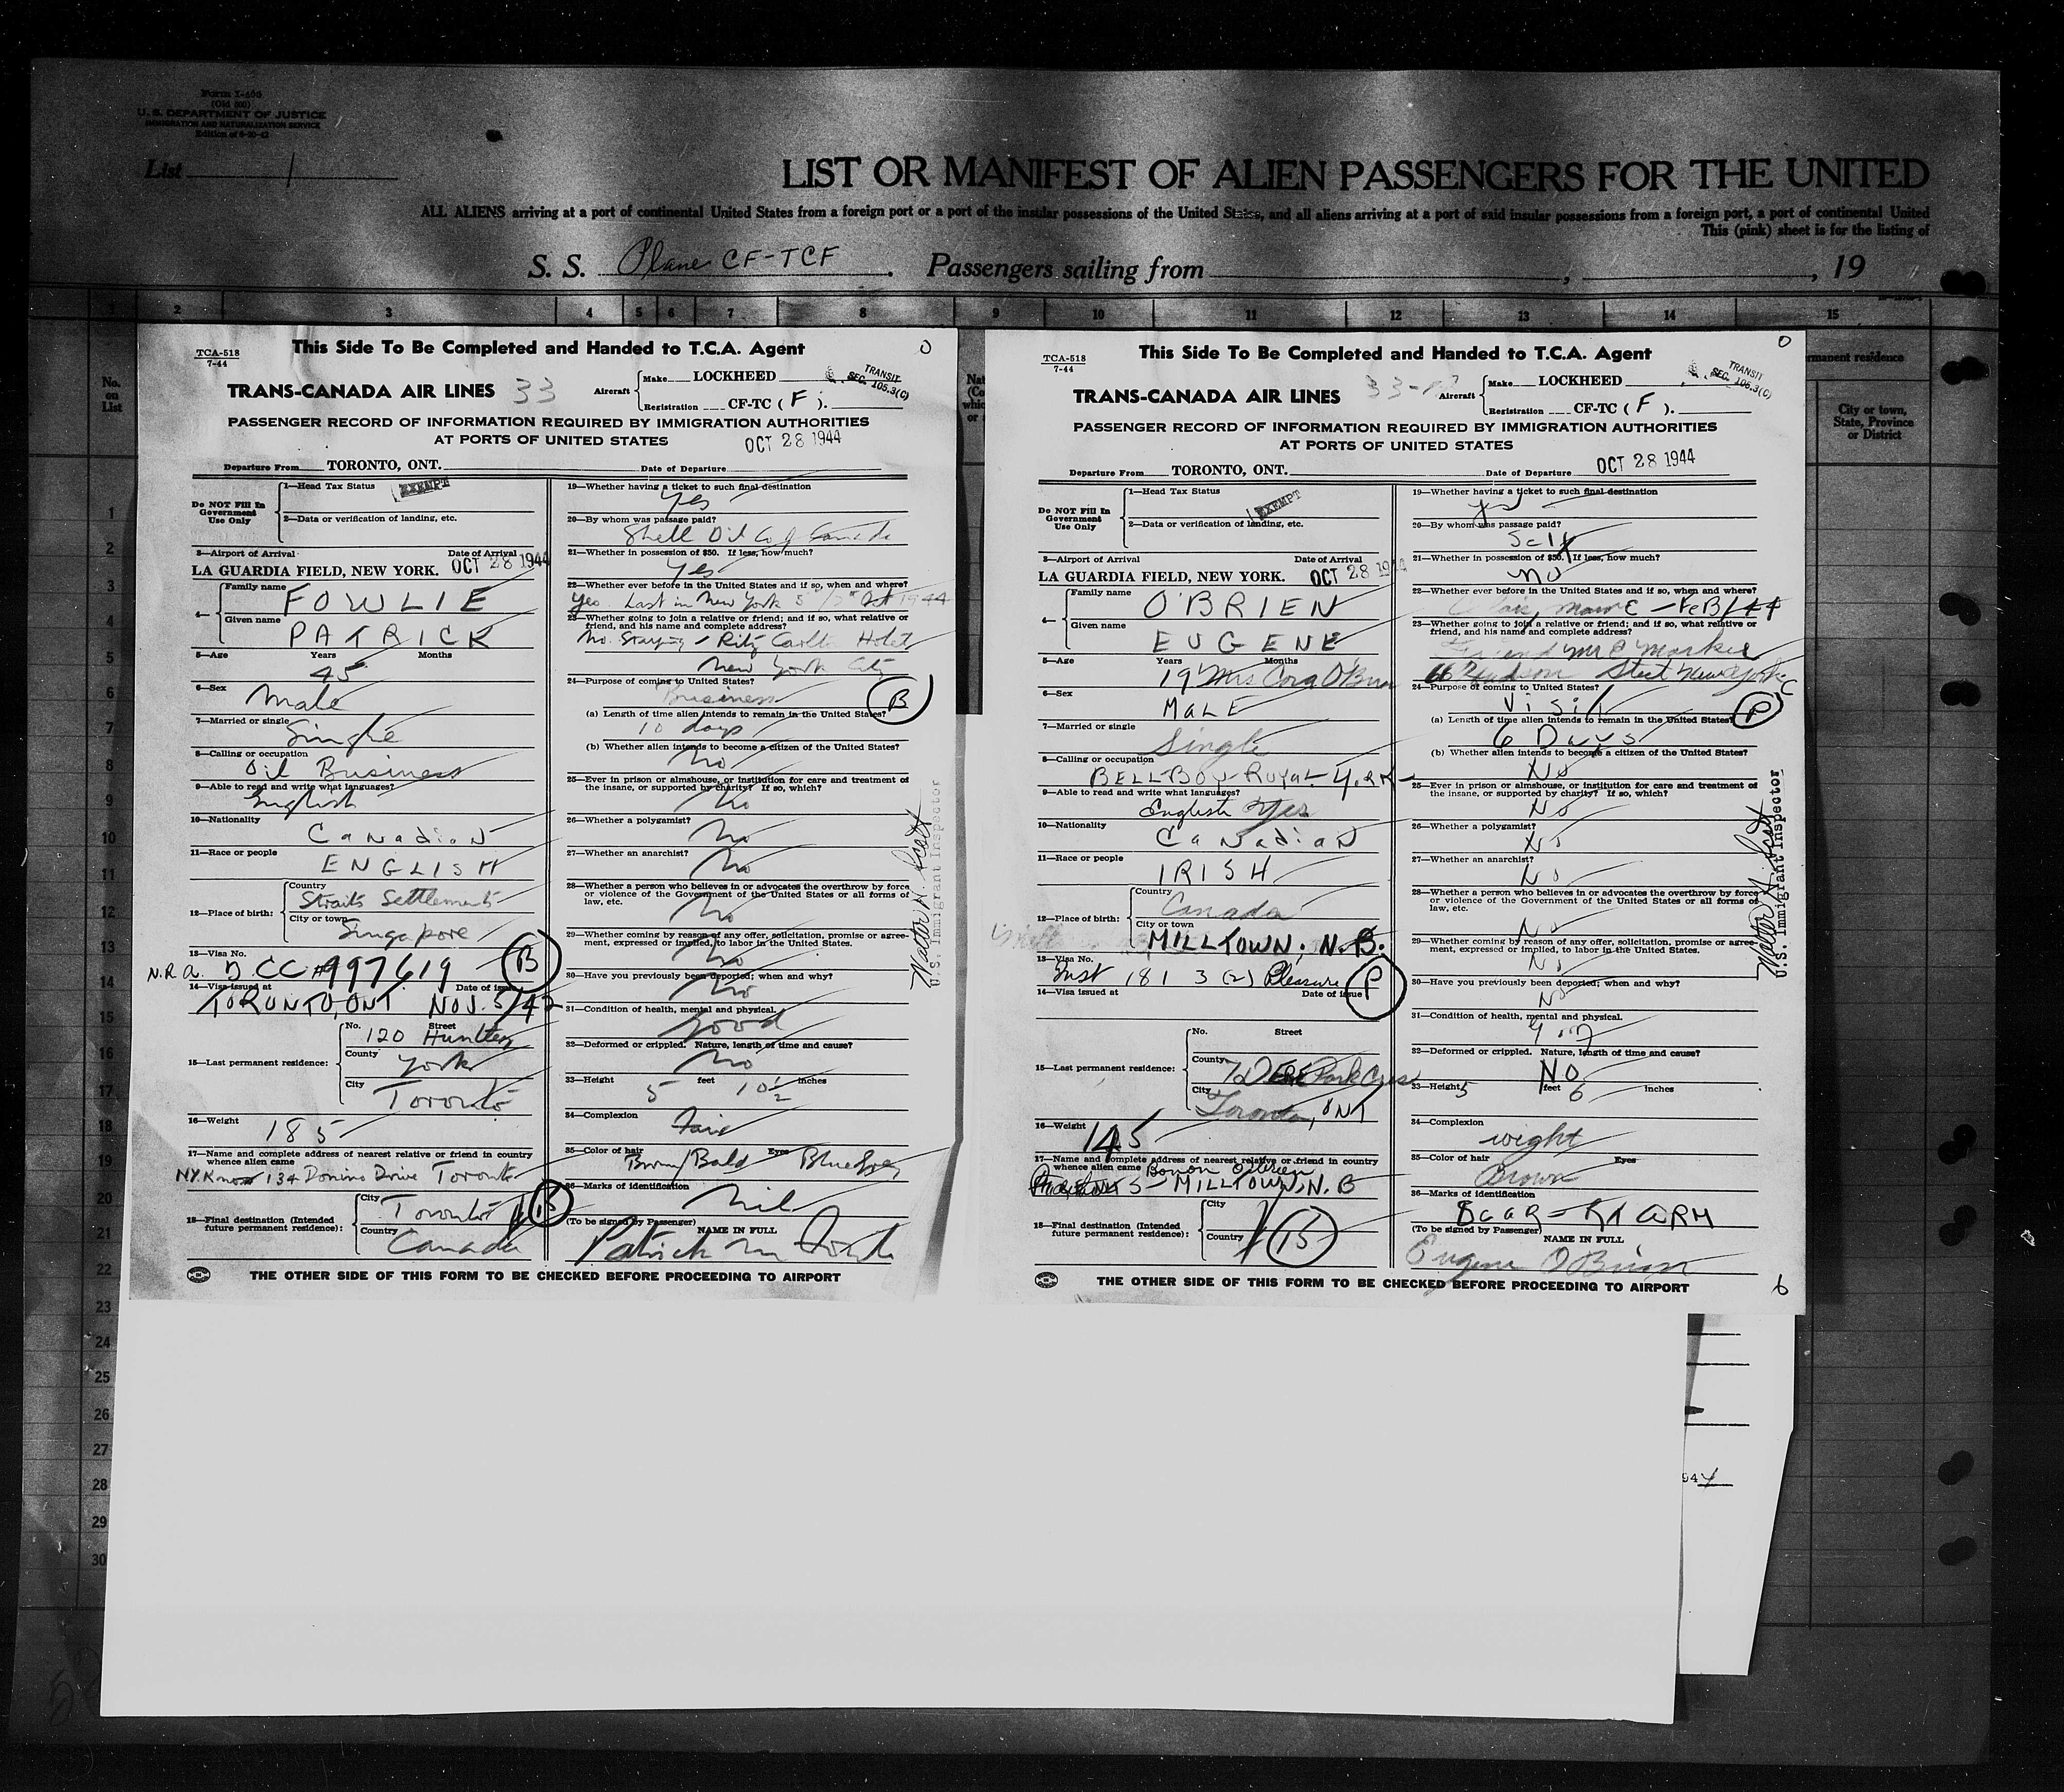 Form I-400
(Old 500)
U. S. DEPARTMENT OF JUSTICE
IMMIGRATION AND NATURALIZATION SERVICE
List 1
LIST OR MANIFEST OF ALIEN PASSENGERS FOR THE UNITED
ALL ALIENS arriving at a port of continental United States from a foreign port or a port of the insular possessions of the United States, and all aliens arriving at a port of said insular possessions from a foreign port, a port of continental United
This (pink) sheet is for the listing of
S. S. Plane CF-TCF . Passengers sailing from , , 19
1 2 3 4 5 6 7 8 9 10 11 12 13 14 15
No. on List
permanent residence
City or town, State, Province or District
1
2
3
4
5
6
7
8
9
10
11
12
13
14
15
16
17
18
19
20
21
22
23
24
25
26
27
28
29
30
This Side To Be Completed and Handed to T.C.A. Agent
TCA-518
7-44
TRANS-CANADA AIR LINES 33
Aircraft Make LOCKHEED
Registration CF-TC ( F ).
TRANSIT
SEC. 105.3(C)
PASSENGER RECORD OF INFORMATION REQUIRED BY IMMIGRATION AUTHORITIES
AT PORTS OF UNITED STATES
OCT 28 1944
Departure From TORONTO, ONT. Date of Departure
Do NOT Fill In Government Use Only
1—Head Tax Status EXEMPT
2—Data or verification of landing, etc.
3—Airport of Arrival Date of Arrival
LA GUARDIA FIELD, NEW YORK. OCT 28 1944
4— Family name FOWLIE
Given name PATRICK
5—Age Years Months
45
6—Sex
Male
7—Married or single
Single
8—Calling or occupation
Oil Business
9—Able to read and write what languages?
English
10—Nationality
Canadian
11—Race or people
ENGLISH
12—Place of birth: Country
Straits Settlements
City or town
Singapore
13—Visa No.
N.R.A. D CC #997619 B
14—Visa issued at Date of issue
TORONTO, ONT NOV. 5/42
15—Last permanent residence: No. Street
120 Huntley
County York
City Toronto
16—Weight
185
17—Name and complete address of nearest relative or friend in country
whence alien came
134 Donino Drive Toronto
18—Final destination (Intended
future permanent residence): City Toronto B
Country Canada
19—Whether having a ticket to such final destination
Yes
20—By whom was passage paid?
Shell Oil Co of Canada
21—Whether in possession of $50. If less, how much?
Yes
22—Whether ever before in the United States and if so, when and where?
Yes Last in New York Oct 1944
23—Whether going to join a relative or friend; and if so, what relative or
friend, and his name and complete address?
No. Staying Ritz Carlton Hotel
New York City
24—Purpose of coming to United States?
Business B
(a) Length of time alien intends to remain in the United States?
10 days
(b) Whether alien intends to become a citizen of the United States?
No
25—Ever in prison or almshouse, or institution for care and treatment of
the insane, or supported by charity? If so, which?
No
26—Whether a polygamist?
No
27—Whether an anarchist?
No
28—Whether a person who believes in or advocates the overthrow by force
or violence of the Government of the United States or all forms of
law, etc.
No
29—Whether coming by reason of any offer, solicitation, promise or agree-
ment, expressed or implied, to labor in the United States.
No
30—Have you previously been deported; when and why?
No
31—Condition of health, mental and physical.
good
32—Deformed or crippled. Nature, length of time and cause?
No
33—Height 5 feet 10½ inches
34—Complexion
Fair
35—Color of hair Eyes
Brown/Bald Blue Grey
36—Marks of identification
Nil
(To be signed by Passenger) NAME IN FULL
Patrick M Fowlie
Walter N. Scott
U.S. Immigrant Inspector
THE OTHER SIDE OF THIS FORM TO BE CHECKED BEFORE PROCEEDING TO AIRPORT
This Side To Be Completed and Handed to T.C.A. Agent
TCA-518
7-44
TRANS-CANADA AIR LINES
Aircraft Make LOCKHEED
Registration CF-TC ( F ).
TRANSIT
SEC. 105.3(C)
PASSENGER RECORD OF INFORMATION REQUIRED BY IMMIGRATION AUTHORITIES
AT PORTS OF UNITED STATES
OCT 28 1944
Departure From TORONTO, ONT. Date of Departure
Do NOT Fill In Government Use Only
1—Head Tax Status
EXEMPT
2—Data or verification of landing, etc.
3—Airport of Arrival Date of Arrival
LA GUARDIA FIELD, NEW YORK. OCT 28 1944
4— Family name O'BRIEN
Given name EUGENE
5—Age Years Months
19 Mrs Cora O'Brien
6—Sex
MALE
7—Married or single
Single
8—Calling or occupation
BELLBOY - ROYAL YORK
9—Able to read and write what languages?
English Yes
10—Nationality
Canadian
11—Race or people
IRISH
12—Place of birth: Country
Canada
City or town
MILLTOWN, N.B.
13—Visa No.
Inst 181 3 (2) Pleasure P
14—Visa issued at Date of issue
15—Last permanent residence: No. Street
County
City Toronto, ONT
16—Weight
145
17—Name and complete address of nearest relative or friend in country
whence alien came
MILLTOWN, N.B
18—Final destination (Intended
future permanent residence): City
Country
19—Whether having a ticket to such final destination
yes
20—By whom was passage paid?
Self
21—Whether in possession of $50. If less, how much?
No
22—Whether ever before in the United States and if so, when and where?
Maine - FEB/44
23—Whether going to join a relative or friend; and if so, what relative or
friend, and his name and complete address?
Friend Mr
Hudson Street New York
24—Purpose of coming to United States?
Visit P
(a) Length of time alien intends to remain in the United States?
6 Days
(b) Whether alien intends to become a citizen of the United States?
No
25—Ever in prison or almshouse, or institution for care and treatment of
the insane, or supported by charity? If so, which?
No
26—Whether a polygamist?
No
27—Whether an anarchist?
No
28—Whether a person who believes in or advocates the overthrow by force
or violence of the Government of the United States or all forms of
law, etc.
No
29—Whether coming by reason of any offer, solicitation, promise or agree-
ment, expressed or implied, to labor in the United States.
No
30—Have you previously been deported; when and why?
No
31—Condition of health, mental and physical.
32—Deformed or crippled. Nature, length of time and cause?
NO
33—Height 5 feet 6 inches
34—Complexion
wight
35—Color of hair Eyes
Brown
36—Marks of identification
(To be signed by Passenger) NAME IN FULL
Eugene O'Brien
Walter N. Scott
U.S. Immigrant Inspector
THE OTHER SIDE OF THIS FORM TO BE CHECKED BEFORE PROCEEDING TO AIRPORT